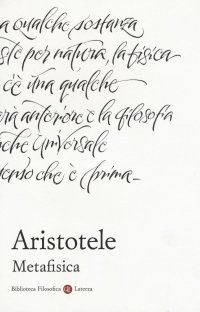 a qualche sostanza
per natura, la fisica
c'è una qualche
rà anteriore e la filosofia
che universale
è prima_
Aristotele
Metafisica
Biblioteca Filosofica Laterza